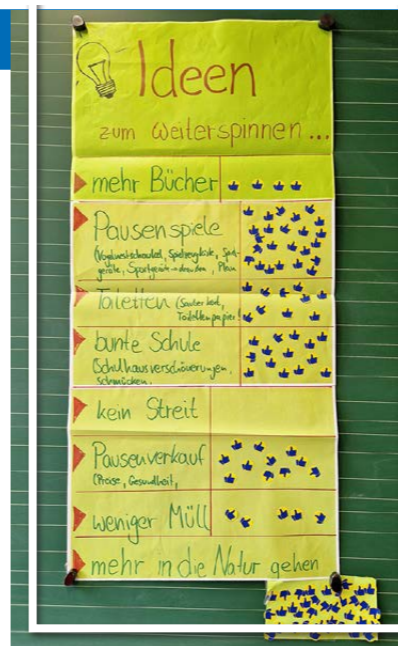 Ideen
zum Weiterspinnen...
mehr Bücher
Pausenspiele
(Vogelnestschaukel, Spielzeugkiste,
Toiletten (Sauberkeit,
Toilettenpapier)
bunte Schule
(Schulhausverschönerungen,
schmücken,
kein Streit
Pausenverkauf
(Preise, Gesundheit,
weniger Müll
mehr in die Natur gehen